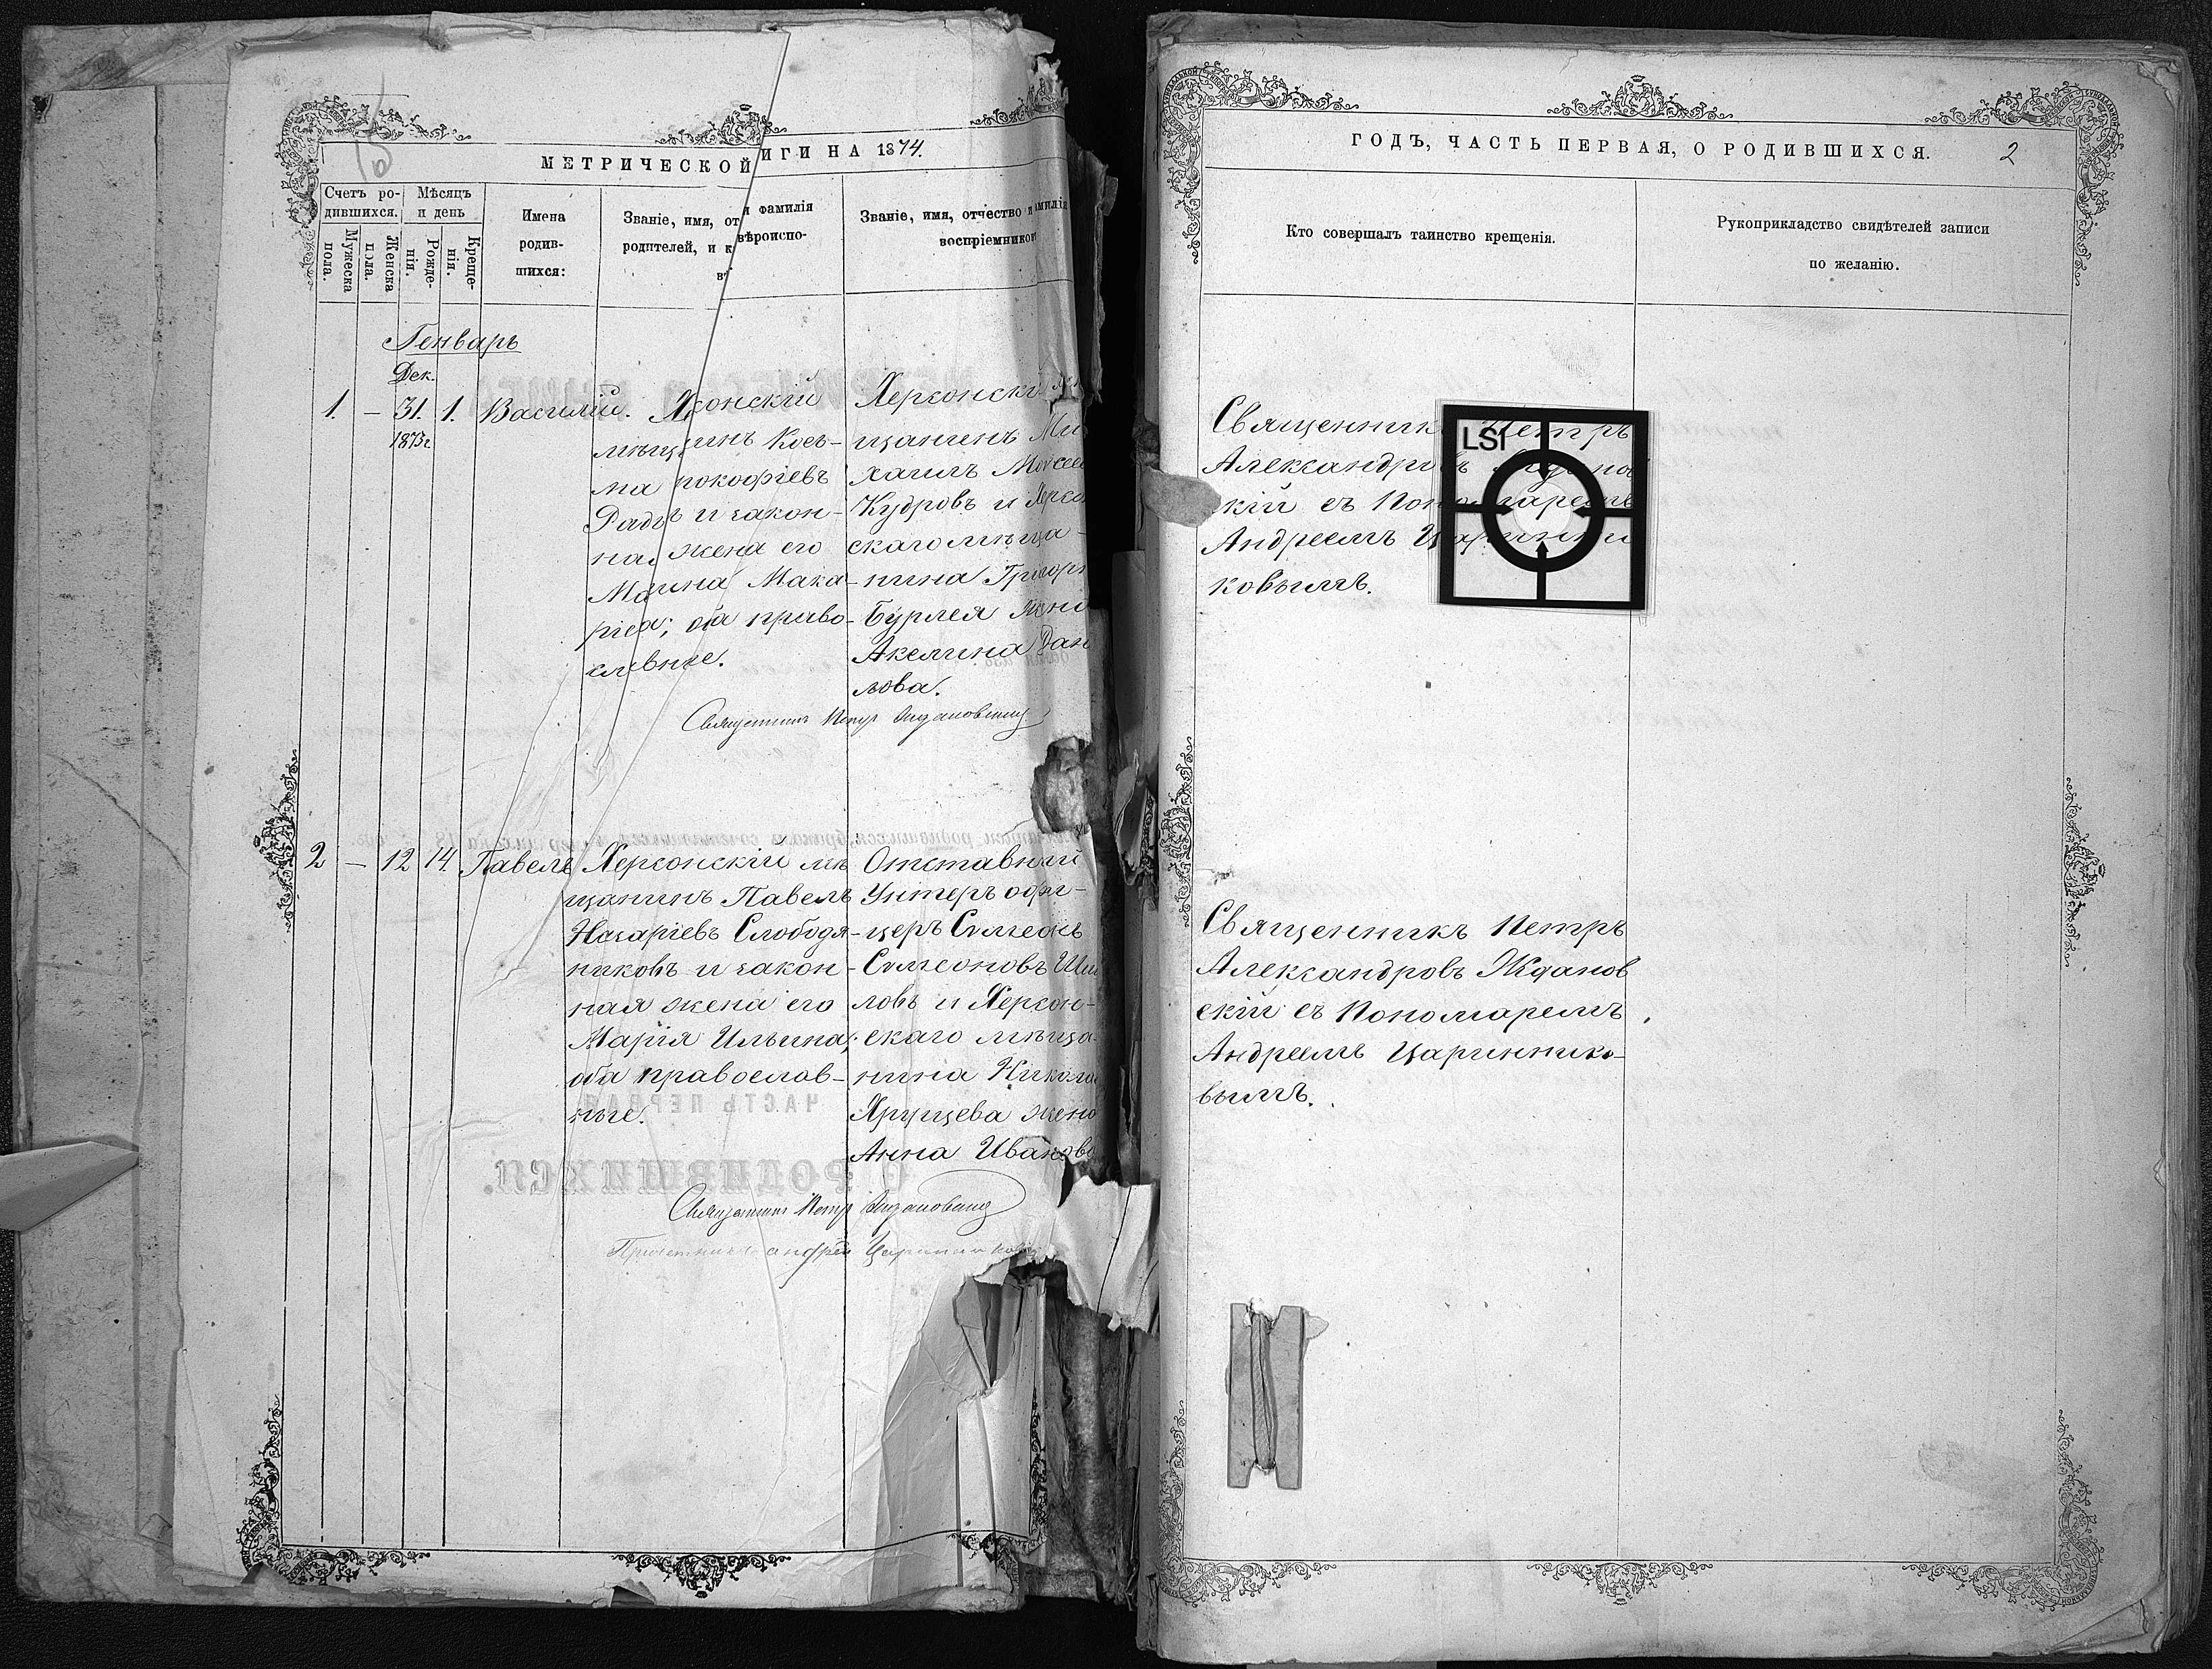 МЕТРИЧЕСКОЙ ИГИ НА 1874.
Счетъ ро-
дившихся.
Мужеска
пола.
Женска
пола.
Мѣсяцъ
и день
Рожде-
нія.
Креще-
нія.
Имена
родив-
шихся:
Званіе, имя, от и фамилія
родителей, и к вѣроиспо-
в
Званіе, имя, отчество и амилія
воспріемников
Генварь
Дек.
1. — 31. 1. Василій.
1873г
Х сонскій
мѣщ инъ Косъ-
ма рокофіевъ
и закон-
на жена его
Мака-
ріева; оба право-
славные.
Херсонскі
щанинъ Ми
хаилъ Моисее
Кудровъ и Херсо
скаго мѣща-
нина Григорі
Бурлея жена
Акелина Дан
лова.
Священникъ Петръ Ждановскій
2 — 12 14. Павелъ
Херсонскій мѣ
щанинъ Павелъ
Назаріевъ Слободя-
никовъ и закон-
ная жена его
Марія Ильина;
оба православ-
ные.
Отставный
Унтеръ офи-
церъ Сѵмеонъ
Сѵмеоновъ Ши
ловъ и Херсон-
скаго мѣща
нина Никола
Хрущева жена
Анна Иванова
Священникъ Петръ Ждановскій
Причетникъ Андрей Царинников
ГОДЪ, ЧАСТЬ ПЕРВАЯ, О РОДИВШИХСЯ. 2
Кто совершалъ таинство крещенія.
Рукоприкладство свидѣтелей записи
по желанію.
Священник Петръ
Александровъ
скій съ Пономаремъ
Андреемъ Царинни
ковымъ.
LSI
Священникъ Петръ
Александровъ Жданов
скій съ Пономаремъ
Андреемъ Цариннико-
вымъ.